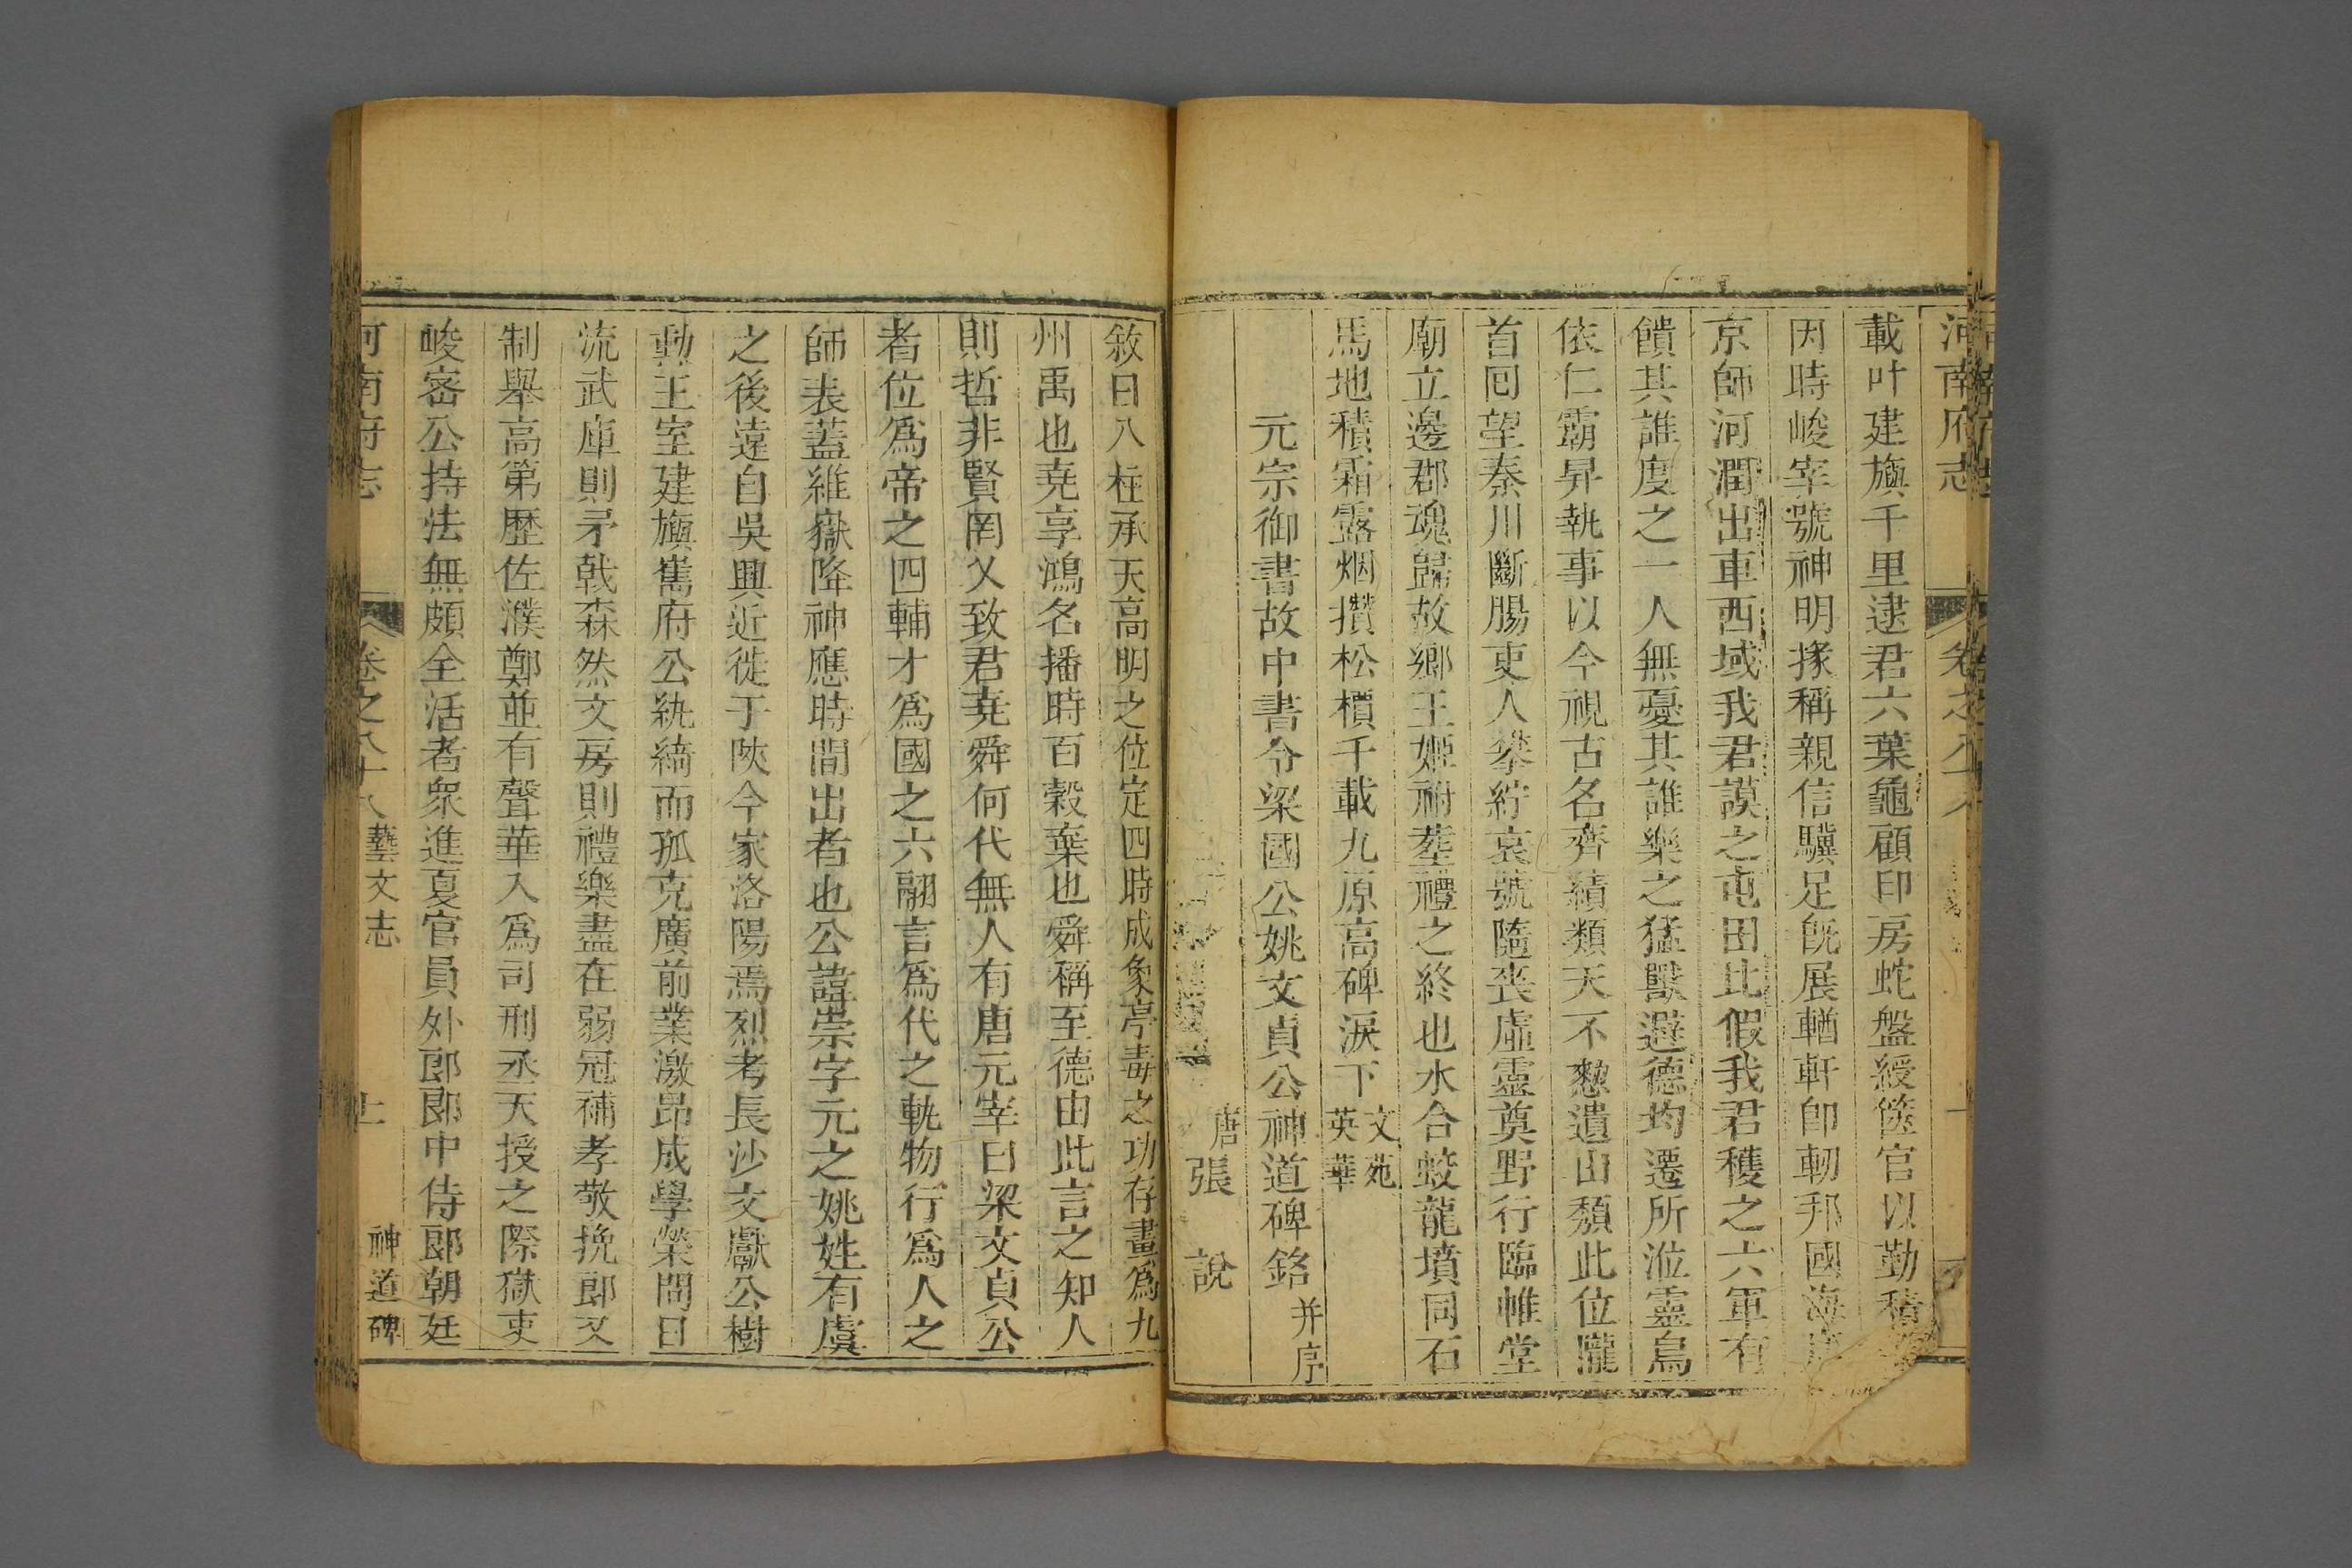 河南府志
卷之八十八
載叶建旟千里逮君六葉龜顧印房蛇盤綬篋官以勤積
因時峻宰號神明掾稱親信驥足旣展輶軒卽軔邦國海
京師河潤出車西域我君謨之屯田比假我君穫之六軍有
饋其誰度之一人無憂其誰樂之猛獸避德均遷所涖靈烏
依仁霸昇執事以今視古名齊績類天不憖遺山頹此位隴
首囘望秦川斷腸吏人拳紵哀號隨喪虛靈奠野行臨帷堂
廟立邊郡魂歸故鄉王姬祔塟禮之終也水合蛟龍墳同石
馬地積霜露烟攅松檟千載九原高碑淚下文苑英華
元宗御書故中書令梁國公姚文貞公神道碑銘并序
唐張說
敘曰八柱承天高明之位定四時成象亭毒之功存畫爲九
州禹也堯享鴻名播時百穀棄也舜稱至德由此言之知人
則哲非賢罔乂致君堯舜何代無人有唐元宰曰梁文貞公
者位爲帝之四輔才爲國之六翮言爲代之軌物行爲人之
師表蓋維嶽降神應時間出者也公諱崇字元之姚姓有虞
之後遠自吳興近徙于陝今家洛陽焉烈考長沙文獻公樹
勲王室建旟嶲府公紈綺而孤克廣前業激昂成學榮問日
流武庫則矛戟森然文房則禮樂盡在弱冠補孝敬挽郎又
制舉高第歷佐濮鄭並有聲華入爲司刑丞天授之際獄吏
峻密公持法無頗全活者衆進夏官員外郎郎中侍郎朝廷
河南府志
卷之八十八
藝文志
神道碑